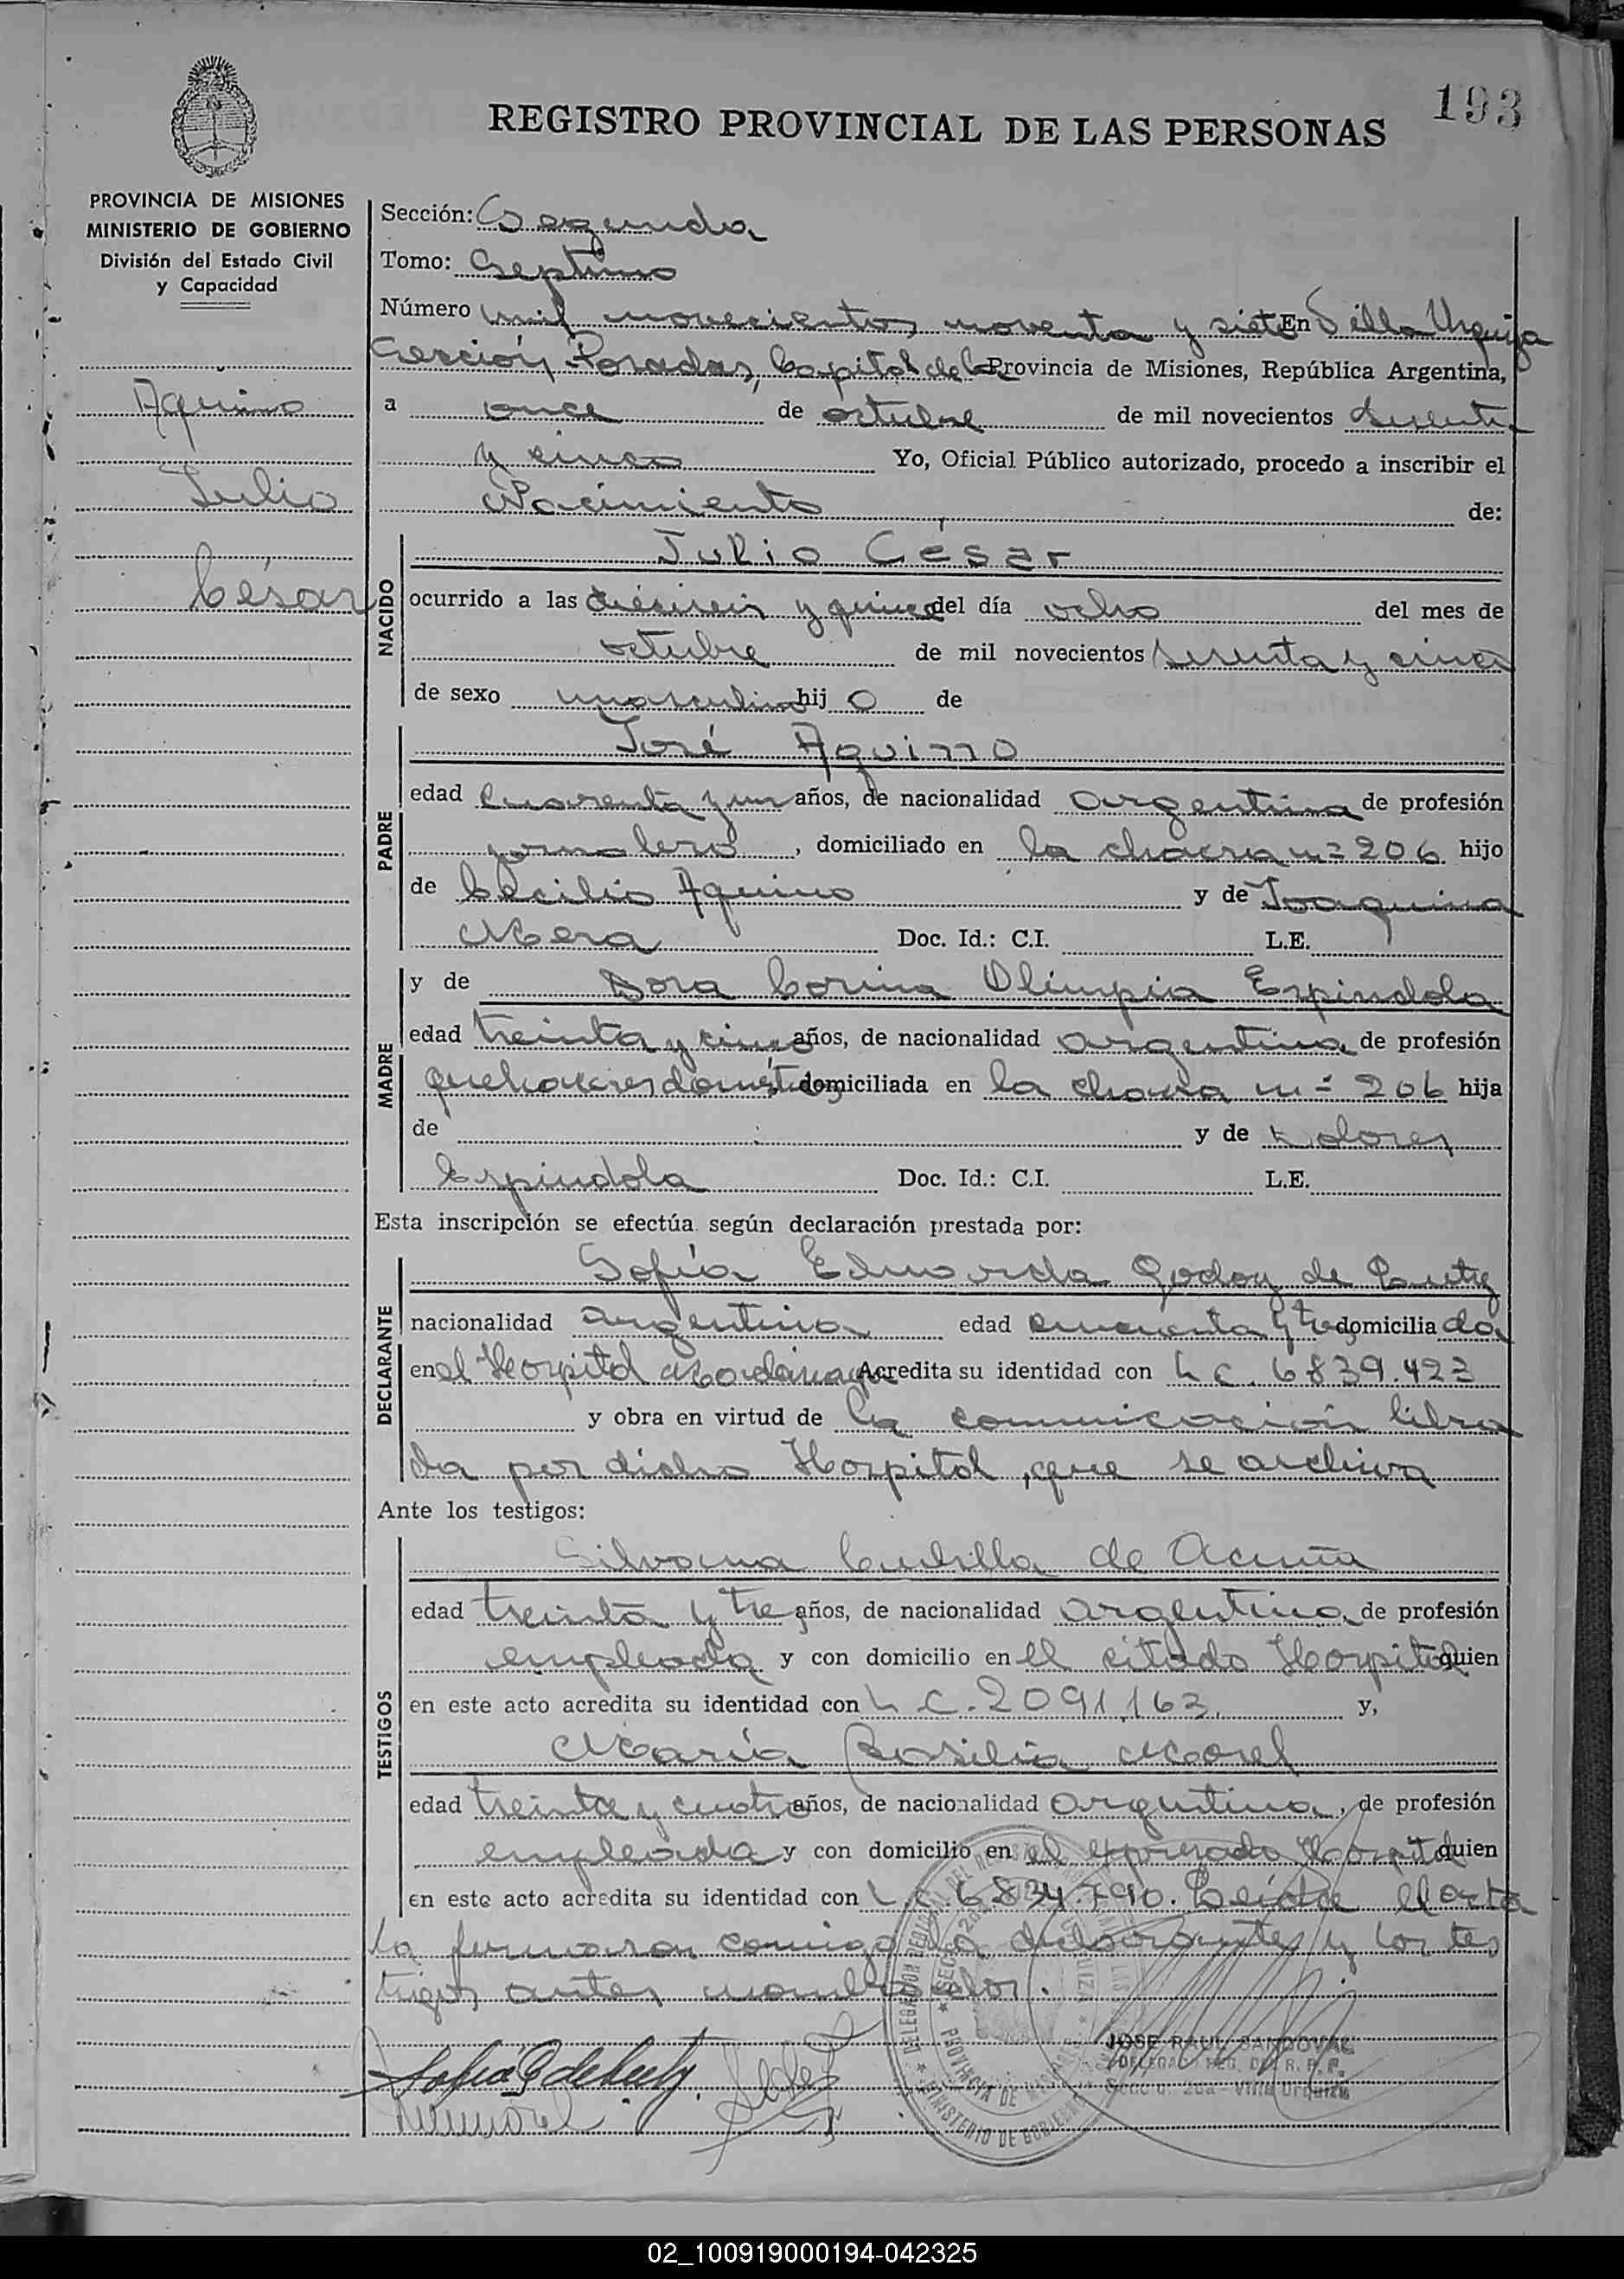 193
REGISTRO PROVINCIAL DE LAS PERSONAS
PROVINCIA DE MISIONES
MINISTERIO DE GOBIERNO
División del Estado Civil
y Capacidad
Aquino
Julio
César
Sección: Segunda
Tomo: Septimo
Número mil novecientos noventa y siete En Villa Urquiza
Sección Posadas, Capital de la Provincia de Misiones, República Argentina,
a once de octubre de mil novecientos sesenta
y cinco Yo, Oficial Público autorizado, procedo a inscribir el
Nacimiento de:
NACIDO
Julio César
ocurrido a las dieciseis y quince del día ocho del mes de
octubre de mil novecientos sesenta y cinco
de sexo masculino hijo de
PADRE
José Aquino
edad cuarenta y un años, de nacionalidad argentina de profesión
jornalero, domiciliado en la chacra n= 206 hijo
de Cecilio Aquino y de Joaquina
Mera Doc. Id.: C.I. L.E.
MADRE
y de Dora Corina Olimpia Espindola
edad treinta y cinco años, de nacionalidad argentina de profesión
quehaceres domésticos domiciliada en la chacra n= 206 hija
de y de Dolores
Espindola Doc. Id.: C.I. L.E.
Esta inscripción se efectúa según declaración prestada por:
DECLARANTE
Sofía Eduarda Godoy de
nacionalidad argentina edad cincuenta y tres domiciliada
en el Hospital Acredita su identidad con L C. 6839.423
y obra en virtud de la comunicación libra
da por dicho Hospital, que se archiva
Ante los testigos:
TESTIGOS
Silvana Cubilla de Acuña
edad treinta y tres años, de nacionalidad argentina de profesión
empleada y con domicilio en el citado Hospital quien
en este acto acredita su identidad con L C. 2091.163. y,
María Basilia Morel
edad treinta y cuatro años, de nacionalidad argentina, de profesión
empleada y con domicilio en el expresado Hospital quien
en este acto acredita su identidad con L.C. 6834.790. Leída el acta
la firmaron conmigo la declarante y los tes
tigos antes nombrados.
JOSE RAUL SANDOVAL
DELEGADO REG. DEL R. P. P.
Sección 2da - Villa Urquiza
02_100919000194-042325